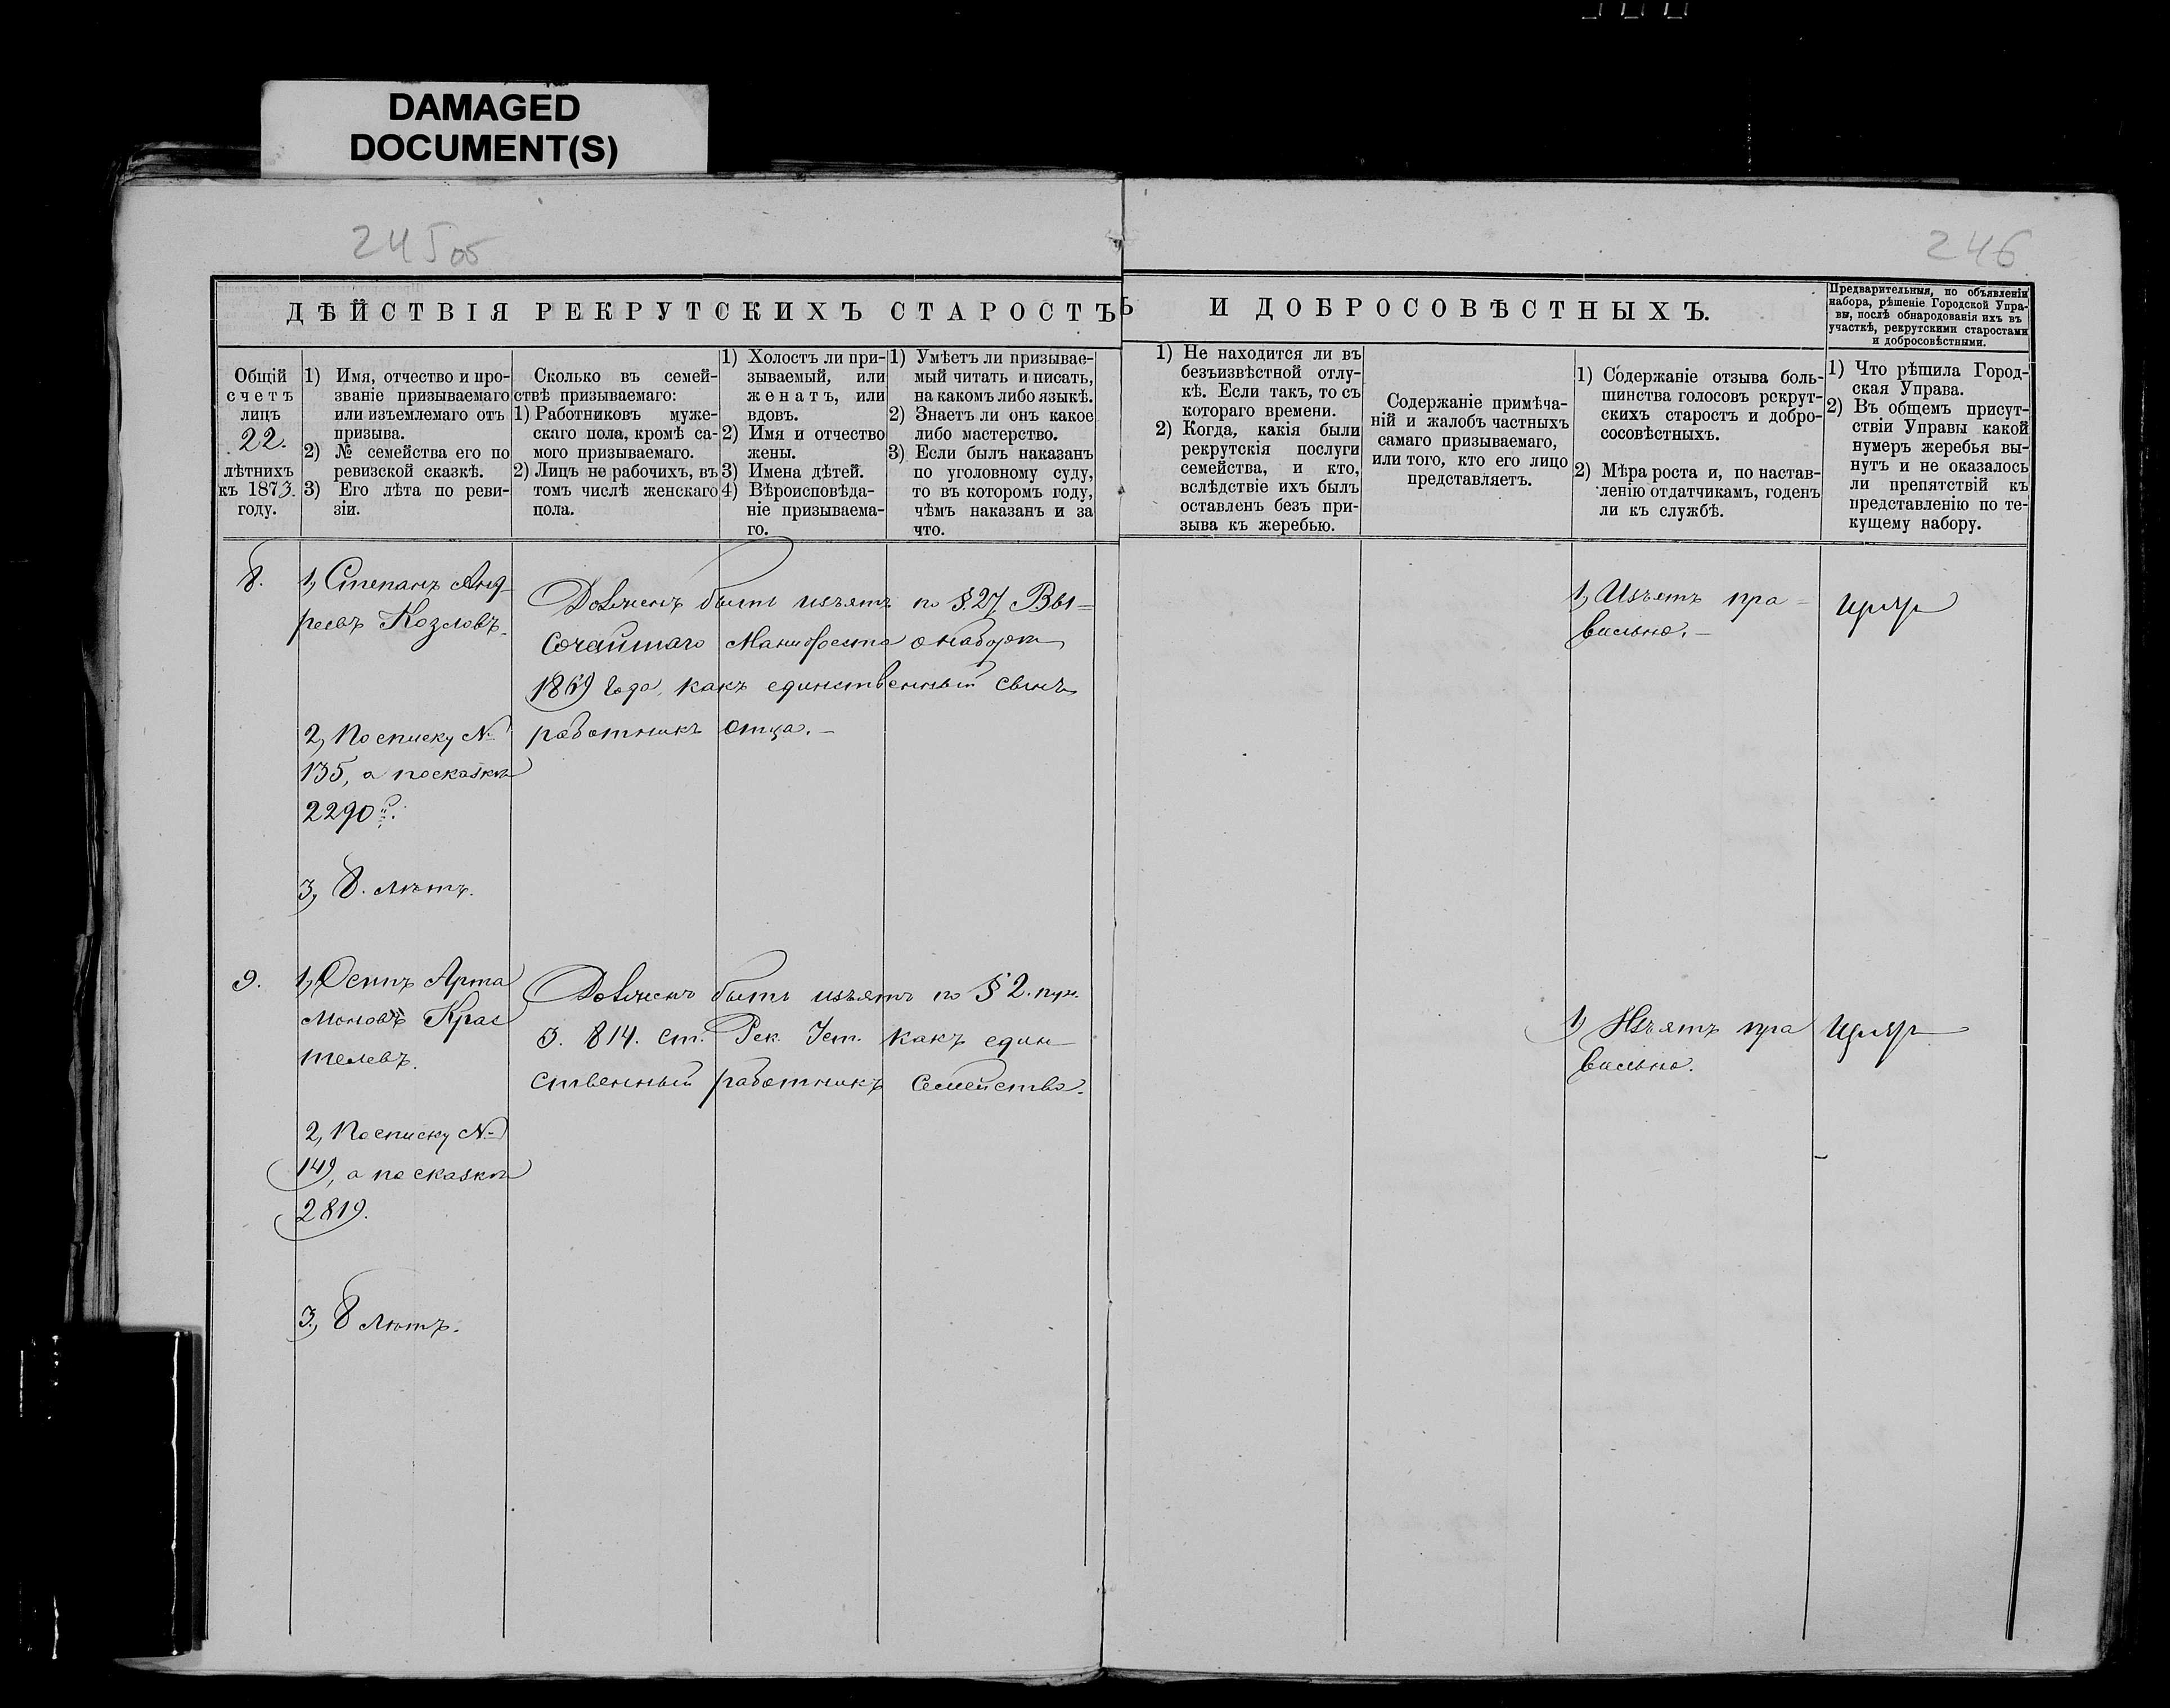 DAMAGED
DOCUMENT(S)
245об
246
ДѢЙСТВІЯ РЕКРУТСКИХЪ СТАРОСТЪ
И ДОБРОСОВѢСТНЫХЪ.
Предварительныя, по объявленіи
набора, рѣшеніе Городской Упра-
вы, послѣ обнародованія ихъ въ
участкѣ, рекрутскими старостами
и добросовѣстными.
Общій
счетъ
лицъ
22.
лѣтнихъ
къ 1873.
году.
1) Имя, отчество и про-
званіе призываемаго
или изъемлемаго отъ
призыва.
2) № семейства его по
ревизской сказкѣ.
3) Его лѣта по реви-
зіи.
Сколько въ семей-
ствѣ призываемаго:
1) Работниковъ муже-
скаго пола, кромѣ са-
мого призываемаго.
2) Лицъ не рабочихъ, въ
томъ числѣ женскаго
пола.
1) Холостъ ли при-
зываемый, или
женатъ, или
вдовъ.
2) Имя и отчество
жены.
3) Имена дѣтей.
4) Вѣроисповѣда-
ніе призываема-
го.
1) Умѣетъ ли призывае-
мый читать и писать,
на какомъ либо языкѣ.
2) Знаетъ ли онъ какое
либо мастерство.
3) Если былъ наказанъ
по уголовному суду,
то въ которомъ году,
чѣмъ наказанъ и за
что.
1) Не находится ли въ
безъизвѣстной отлу-
кѣ. Если такъ, то съ
котораго времени.
2) Когда, какія были
рекрутскія послуги
семейства, и кто,
вслѣдствіе ихъ былъ
оставленъ безъ при-
зыва къ жеребью.
Содержаніе примѣча-
ній и жалобъ частныхъ
самаго призываемаго,
или того, кто его лицо
представляетъ.
1) Содержаніе отзыва боль-
шинства голосовъ рекрут-
скихъ старостъ и добро-
сосовѣстныхъ.
2) Мѣра роста и, по настав-
ленію отдатчикамъ, годенъ
ли къ службѣ.
1) Что рѣшила Город-
ская Управа.
2) Въ общемъ присут-
ствіи Управы какой
нумеръ жеребья вы-
нутъ и не оказалось
ли препятствій къ
представленію по те-
кущему набору.
8.
1, Степанъ Анд-
реевъ Козловъ.
2, По списку №
135, а по сказкѣ
2290й.
3, 8. лѣтъ.
Долженъ быть изъятъ по §.27. Вы-
сочайшаго Манифеста о наборѣ
1869 года, какъ единственный сынъ
работникъ отца.-
1, Изъятъ пра-
вильно.-
9.
1, Осипъ Арта
моновъ Крас
телевъ.
2, По списку №
149, а по сказкѣ
2819.
3, 8 лѣтъ.
Долженъ быть изъятъ по § 2. пун.
3. 814. ст. Рек. Уст. какъ един-
ственный работникъ семейства.
1, Изъятъ пра
вильно.